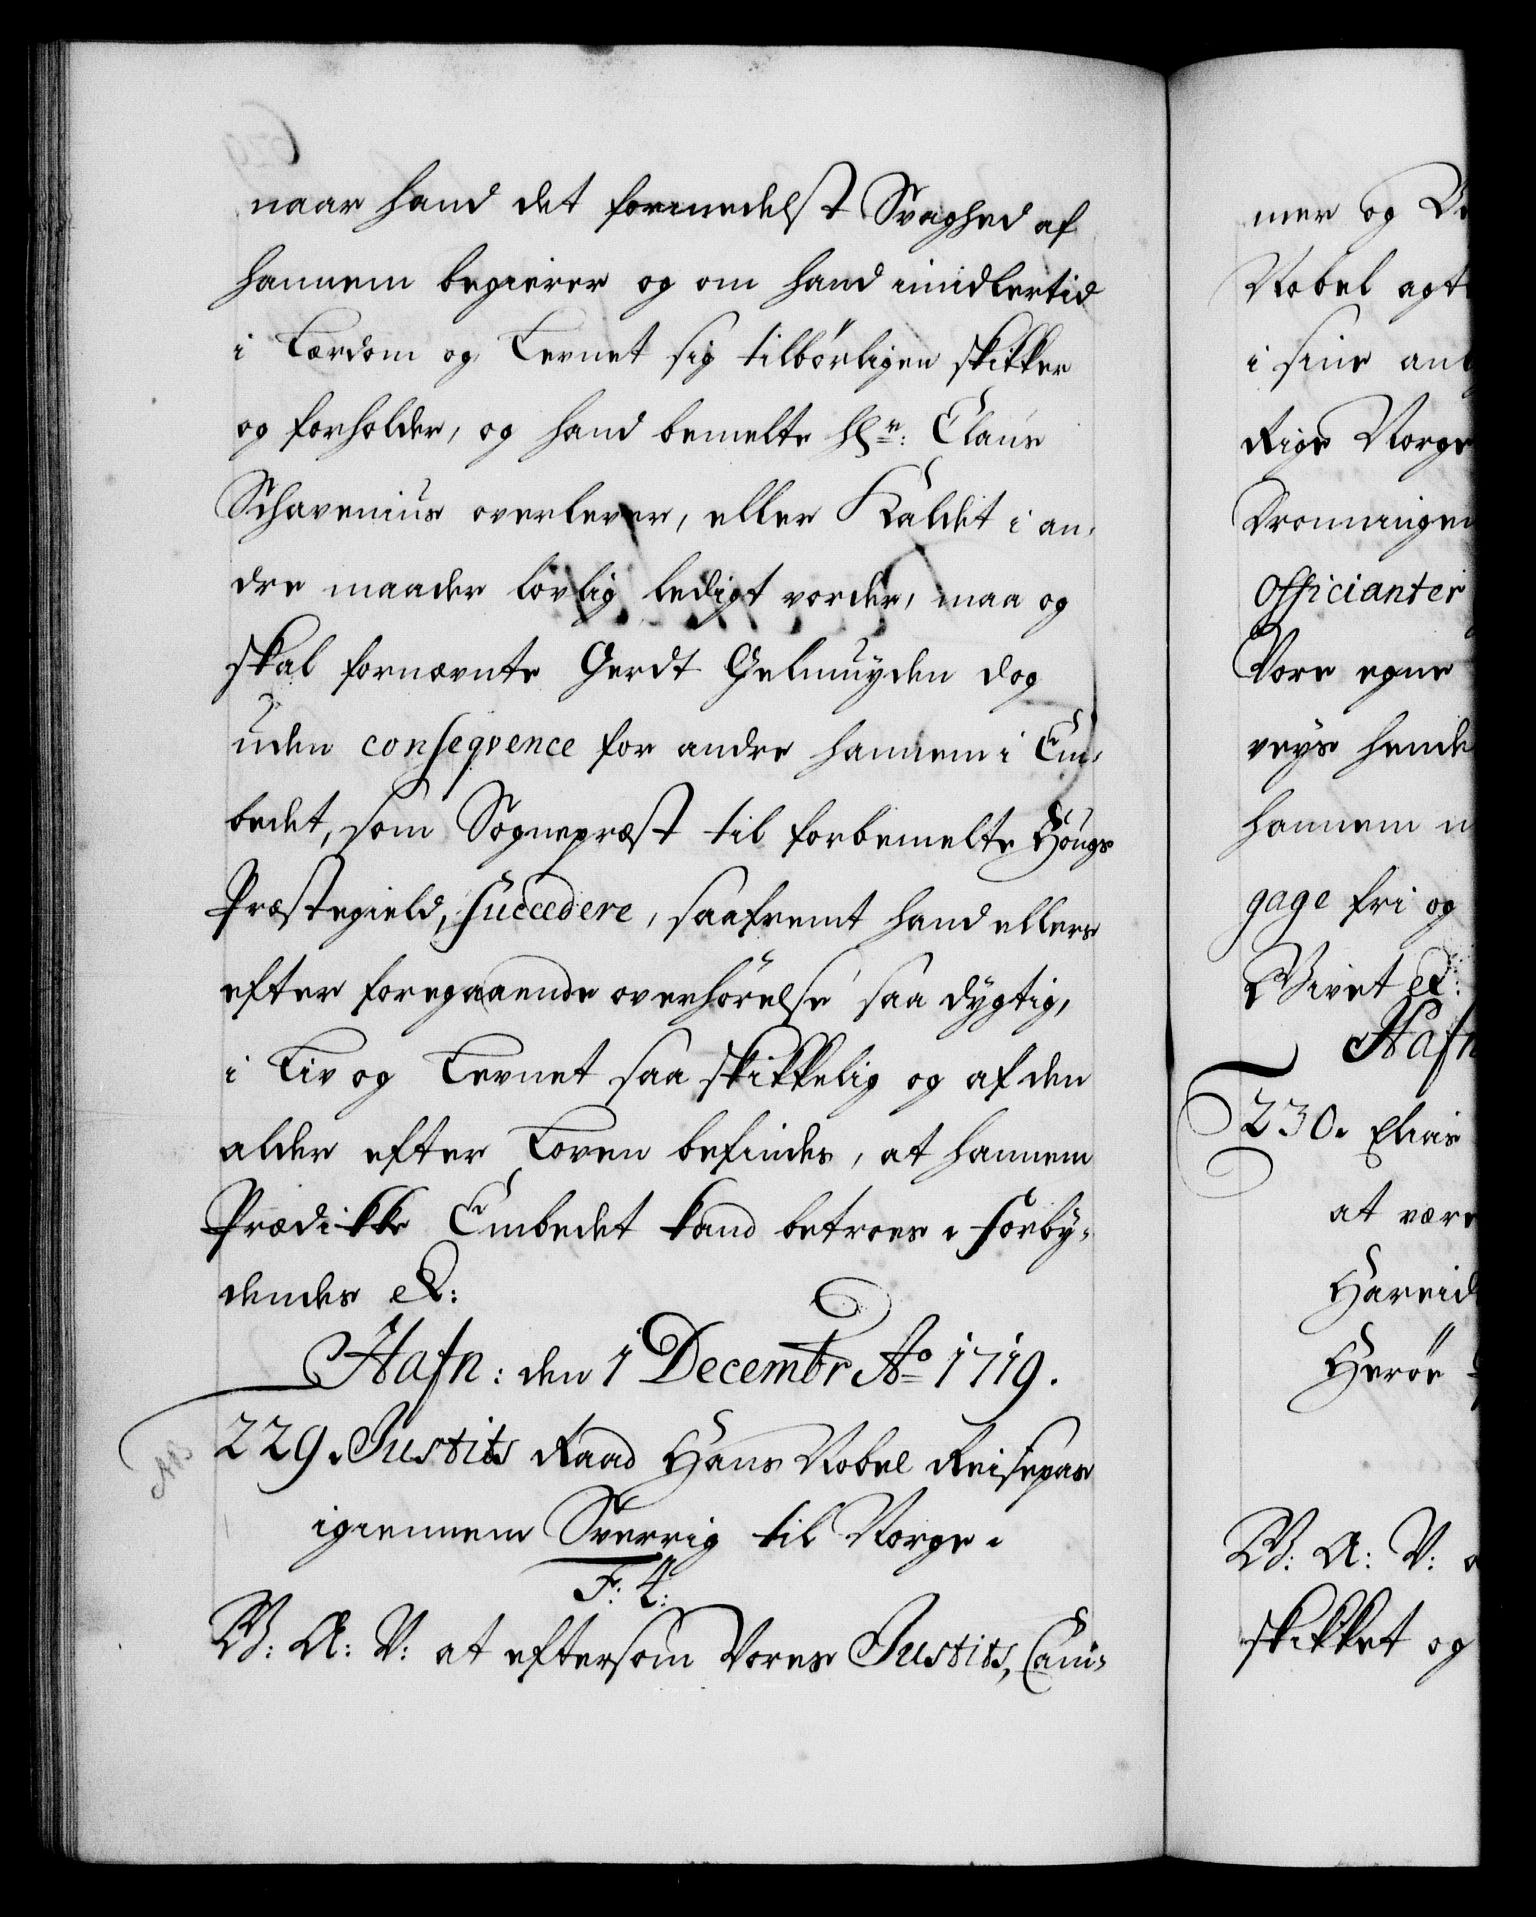 naar hand det formedelst Svaghed af
hannem begierer og om hand imidlertid
i Lærdom og Levnet sig tilbørligen skikker
og forholder, og hand bemelte Hr: Claus
Schavenius overlever, eller Kaldet i an-
dre maader lovlig ledigt vorder, maa og
skal fornævnte Gerdt Gelmuyden dog
uden conseqvence for andre hannem i Em-
bedet, som Sognepræst til forbemelte Hougs
Præstegield, succedere, saafremt hand ellers
efter foregaaende overhørelse saa dygtig,
i Liv og Levnet saa skikkelig og af den
alder efter Loven befindes, at hannem
Prædikke Embedet kand betroes. Forby-
dendes &:
Hafn: den 1 Decembr Ao 1719.
229. Justits Raad Hans Nobel Reisepas
igiennem Sverrig til Norge.
F. 4:
W: A: V: at eftersom Vores Justits, Cam-
mer og
Nobel agt
i sine an
Rige Norge
Dronningen
Officianter
Vore egne
veys hende
hannem
gage fri og
Givet &:
Hafn
230. Elias
at være
Hareid
Herøe
W: A: V:
skikket og